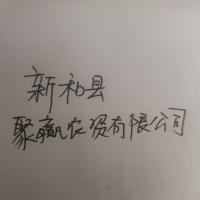 新和县
聚赢农资有限公司